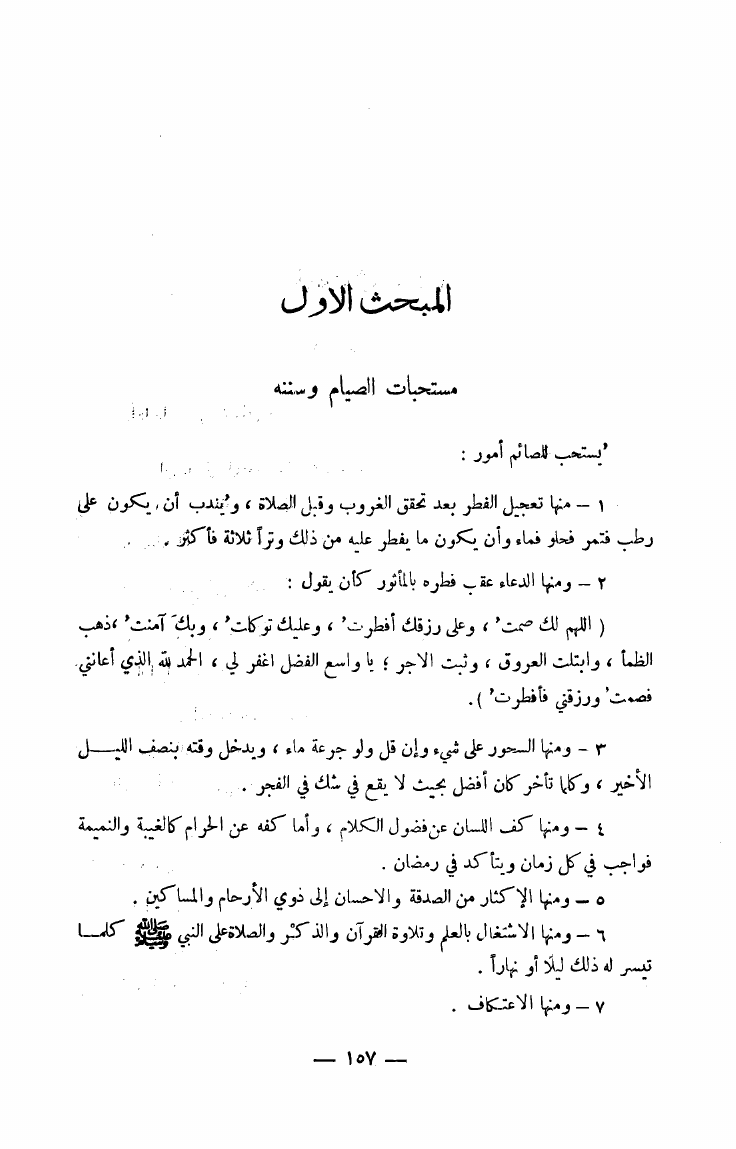 المبحث الاول
مستحبات الصيام وسننه
يُستحب للصائم أمور :
١ – منها تعجيل الفطر بعد تحقق الغروب وقبل الصلاة ، ويُندب أن يكون على
رطب فتمر فحلو فماء وأن يكون ما يفطر عليه من ذلك وتراً ثلاثة فأكثر .
٢ – ومنها الدعاء عقب فطره بالمأثور كأن يقول :
( اللهم لك صمتُ ، وعلى رزقك أفطرتُ ، وعليك توكلتُ ، وبكَ آمنتُ ، ذهب
الظمأ ، وابتلت العروق ، وثبت الاجر ؛ يا واسع الفضل اغفر لي ، الحمد لله الذي أعانني
فصمتُ ورزقني فأفطرتُ ) .
٣ – ومنها السحور على شيء وإن قل ولو جرعة ماء ، ويدخل وقته بنصف الليــل
الأخير ، وكلما تأخر كان أفضل بحيث لا يقع في شك في الفجر .
٤ – ومنها كف اللسان عن فضول الكلام ، وأما كفه عن الحرام كالغيبة والنميمة
فواجب في كل زمان ويتأكد في رمضان .
٥ – ومنها الإكثار من الصدقة والاحسان إلى ذوي الأرحام والمساكين .
٦ – ومنها الاشتغال بالعلم وتلاوة القرآن والذكر والصلاة على النبي ﷺ كلمــا
تيسر له ذلك ليلًا أو نهاراً .
٧ – ومنها الاعتكاف .
— ١٥٧ —